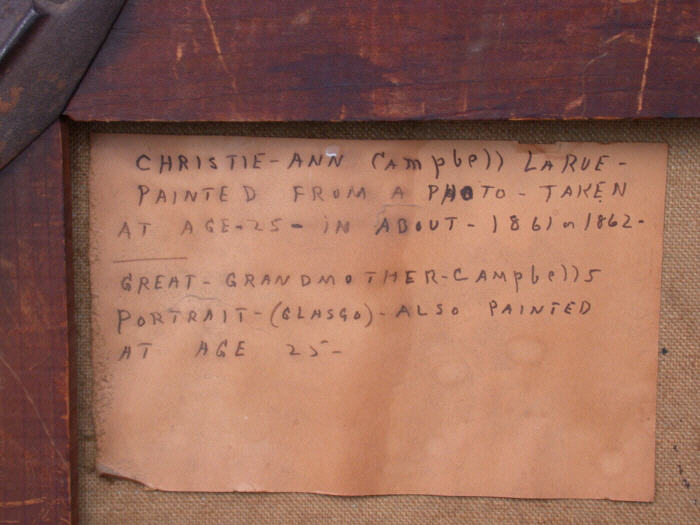 CHRISTIE-ANN CAmpbell LARUE-
PAINTED FROM A PHOTO-TAKEN
AT AGE-25- IN ABOUT-1861 or 1862-
GREAT-GRANDMOTHER-CAmpbells
PORTRAIT-(GLASGO)-ALSO PAINTED
AT AGE 25-